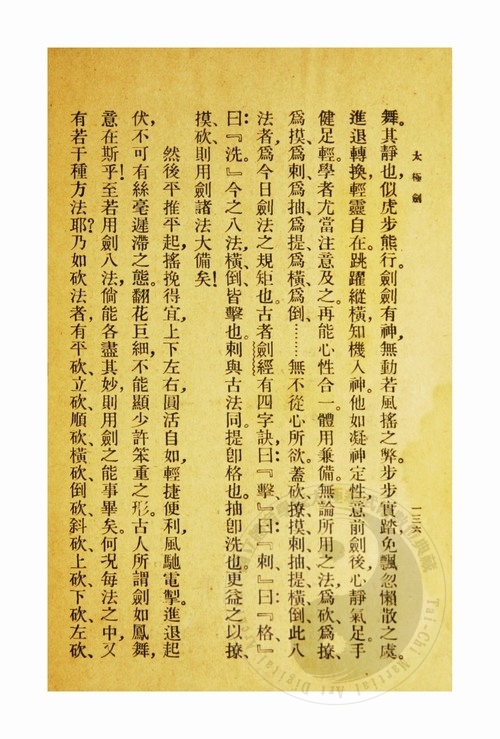 太極劍
一三六
舞。其靜也，似虎步熊行。劍劍有神，無動若風搖之弊。步步實踏，免飄忽懶散之處。
進退轉換，輕靈自在。跳躍縱橫，知機入神。他如凝神定性，意前劍後，心靜氣足，手
健足輕。學者尤當注意及之。再能心性合一，體用兼備。無論所用之法，爲砍、爲撩、
爲摸、爲刺、爲抽、爲提、爲橫、爲倒、……無不從心所欲。蓋砍撩摸刺抽提橫倒，此八
法者，爲今日劍法之規矩也。古者劍經有四字訣：曰『擊』曰『刺』曰『格』
曰：『洗。』今之八法，橫倒皆擊也。刺與古法同。提卽格也。抽卽洗也。更益之以撩、
摸、砍、則用劍諸法大備矣！
然後平推平起，搖挽得宜，上下左右，圓活自如，輕捷便利，風馳電掣。進退起
伏，不可有絲毫遲滯之態。翻花巨細，不能顯少許笨重之形。古人所謂劍如鳳舞，
意在斯乎！至若用劍八法，倘能各盡其妙，則用劍之能事畢矣。何況每法之中，又
有若干種方法耶？乃如砍法者，有平砍、立砍、順砍、橫砍、倒砍、斜砍、上砍、下砍、左砍、
Tai-Chi Martial Art Digital